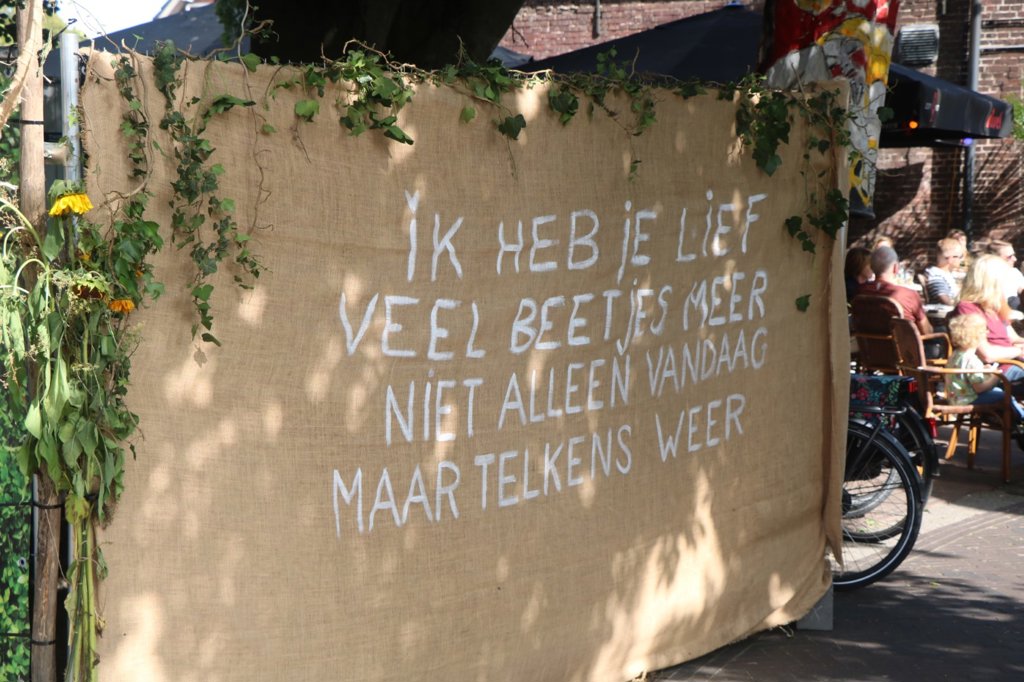 IK HEB JE LIEF
VEEL BEETJES MEER
NIET ALLEEN VANDAAG
MAAR TELKENS WEER